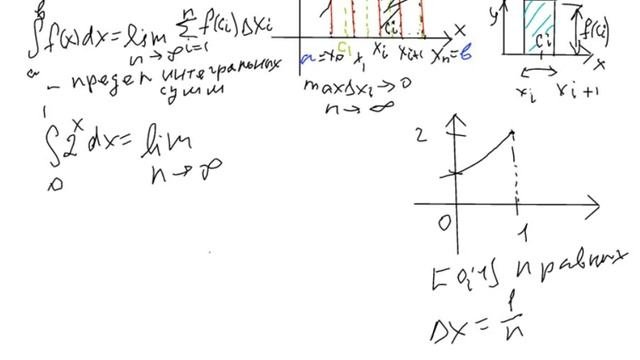 b
∫ f(x)dx = lim Σ f(ci) Δxi
a n→∞ i=1 n
— предел интегральных
сумм
a=x0 c1 x1 xi ci xi+1 xn=b x
max Δxi → 0
n → ∞
y
f(ci)
ci
x
xi xi+1
1
∫ 2^x dx = lim
0 n→∞
2
0 1
[0;1] n равных
Δx = 1/n